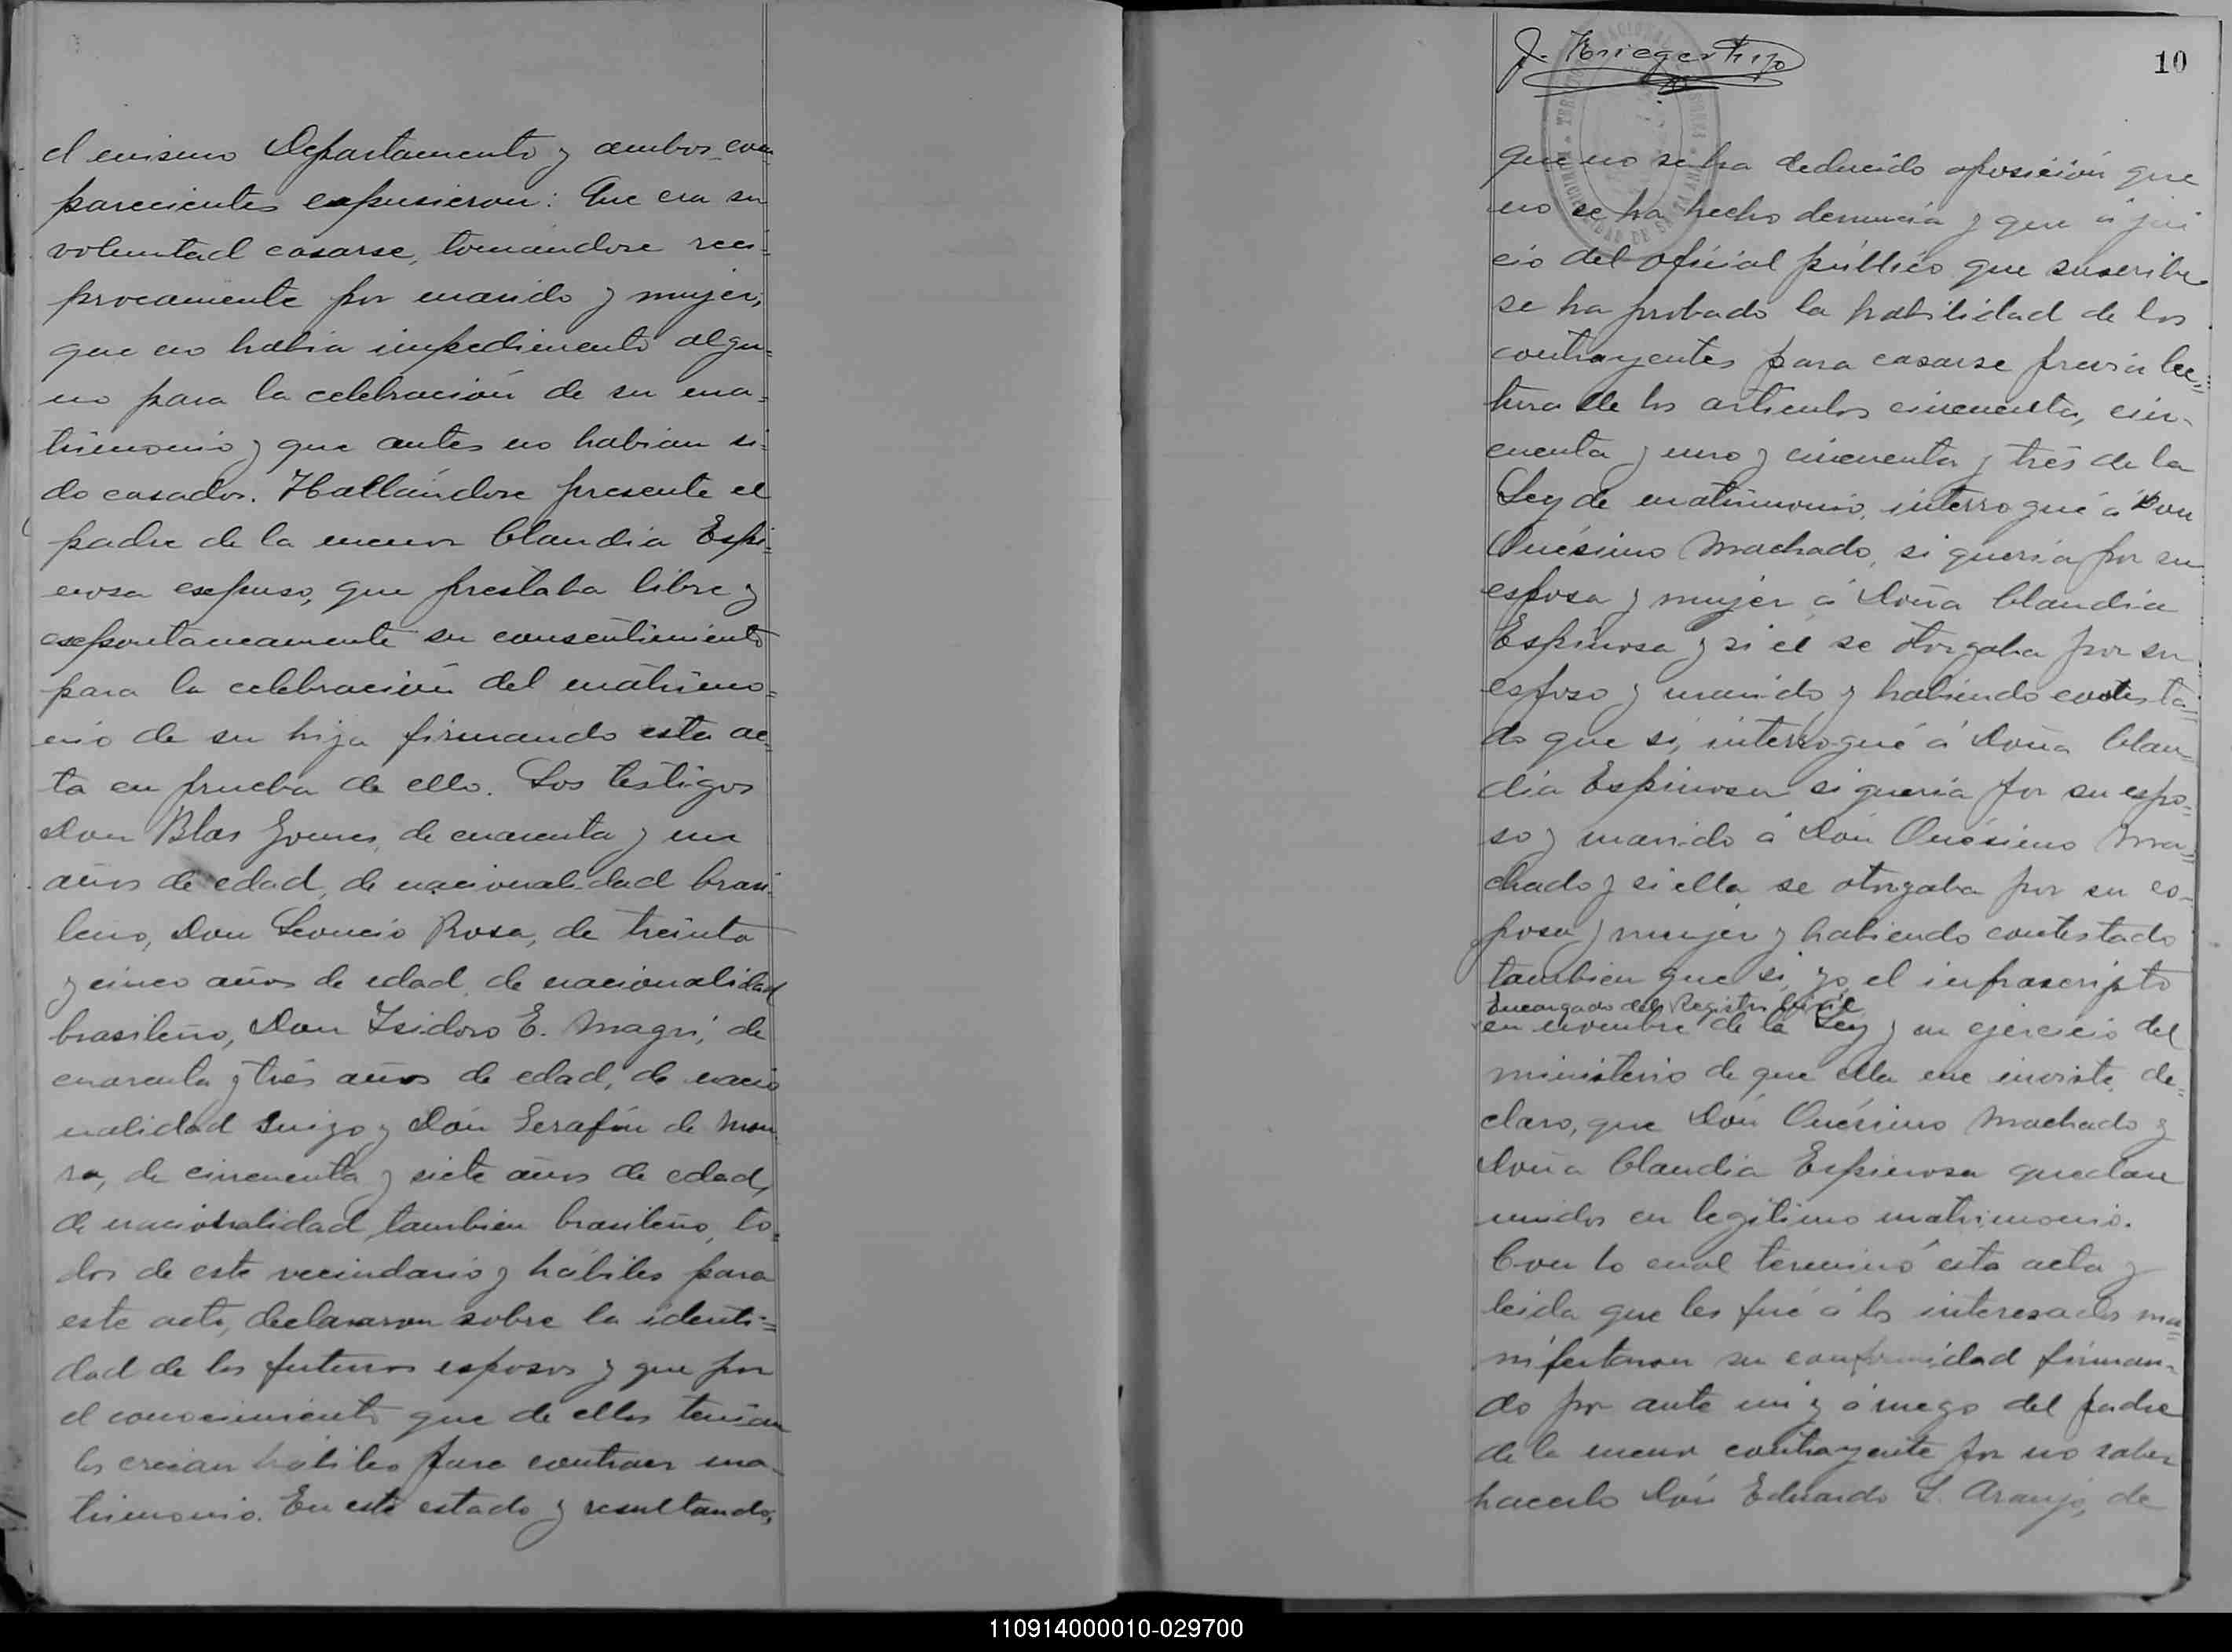 el mismo Departamento y ambos com
parecientes expusieron: Que era su
voluntad casarse, tomándose reci=
procamente por marido y mujer,
que no habia impedimento algu=
no para la celebración de su ma=
trimonio y que antes no habian si=
do casados. Hallándose presente el
padre de la menor Claudia Espi=
nosa expuso, que prestaba libre y
expontaneamente su consentimiento
para la celebración del matrimo=
nio de su hija firmando esta ac=
ta en prueba de ello. Los testigos
Don Blas Gomes, de cuarenta y un
años de edad, de nacionalidad brasi=
leño, Don Leoncio Rosa, de treinta
y cinco años de edad, de nacionalidad
brasileño, Don Isidoro E. Magri, de
cuarenta y trés años de edad, de nacio
nalidad Suizo y Dón Serafin de Mou
ra, de cincuenta y siete años de edad,
de nacionalidad tambien brasileño, to=
dos de este vecindario y hábiles para
este acto, declararon sobre la identi=
dad de los futuros esposos y que por
el conocimiento que de ellos tenian
los creian hábiles para contraer ma-
trimonio. En este estado y resultando,
J. Krieger hijo
10
que no se ha deducido oposición que
no se ha hecho denuncia y que á jui
cio del oficial público que suscribe
se ha probado la habilidad de los
contrayentes para casarse previa lec=
tura de los articulos cincuenta, cin-
cuenta y uno y cincuenta y trés de la
Ley de matrimonio, interrogué á Don
Onésimo Machado, si queria por su
esposa y mujer á Doña Claudia
Espinosa y si él se otorgaba por su
esposo y marido y habiendo contesta=
do que si, interrogué á Doña Clau=
dia Espinosa si queria por su espo=
so y marido á Dón Onésimo Ma=
chado y si ella se otorgaba por su es-
posa y mujer y habiendo contestado
tambien que si, yo, el infrascripto
Encargado del Registro Civil
en nombre de la Ley y en ejercicio del
ministerio de que ella me inviste de=
claro, que Dón Onésimo Machado y
Doña Claudia Espinosa quedan
unidos en legitimo matrimonio.
Con lo cual terminó esta acta y
leida que les fué á los interesados ma=
nifestaron su conformidad firman-
do por ante mi y á ruego del padre
de la menor contrayente por no saber
hacerlo Dón Eduardo L. Araujo, de
110914000010-029700